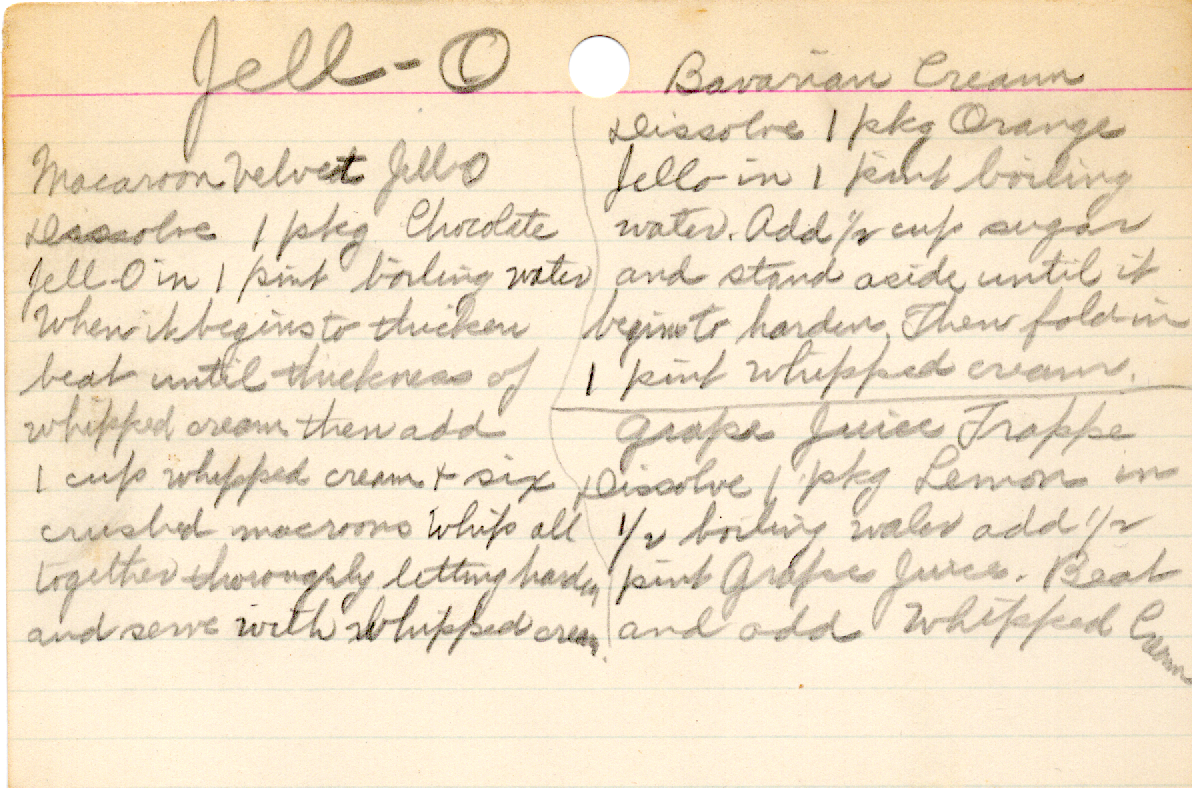 Jell-O
Macaroon Velvet Jell-O
Dissolve 1 pkg Chocolate
Jell-O in 1 pint boiling water
When it begins to thicken
beat until thickness of
whipped cream then add
1 cup whipped cream + six
crushed macroons Whip all
together thoroughly letting harden
and serve with whipped cream.
Bavarian Cream
Dissolve 1 pkg Orange
Jello in 1 pint boiling
water. Add 1/2 cup sugar
and stand aside until it
begins to harden. Then fold in
1 pint whipped cream.
Grape Juice Frappe
Dissolve 1 pkg Lemon in
1/2 boiling water add 1/2
pint Grape Juice. Beat
and add Whipped Cream